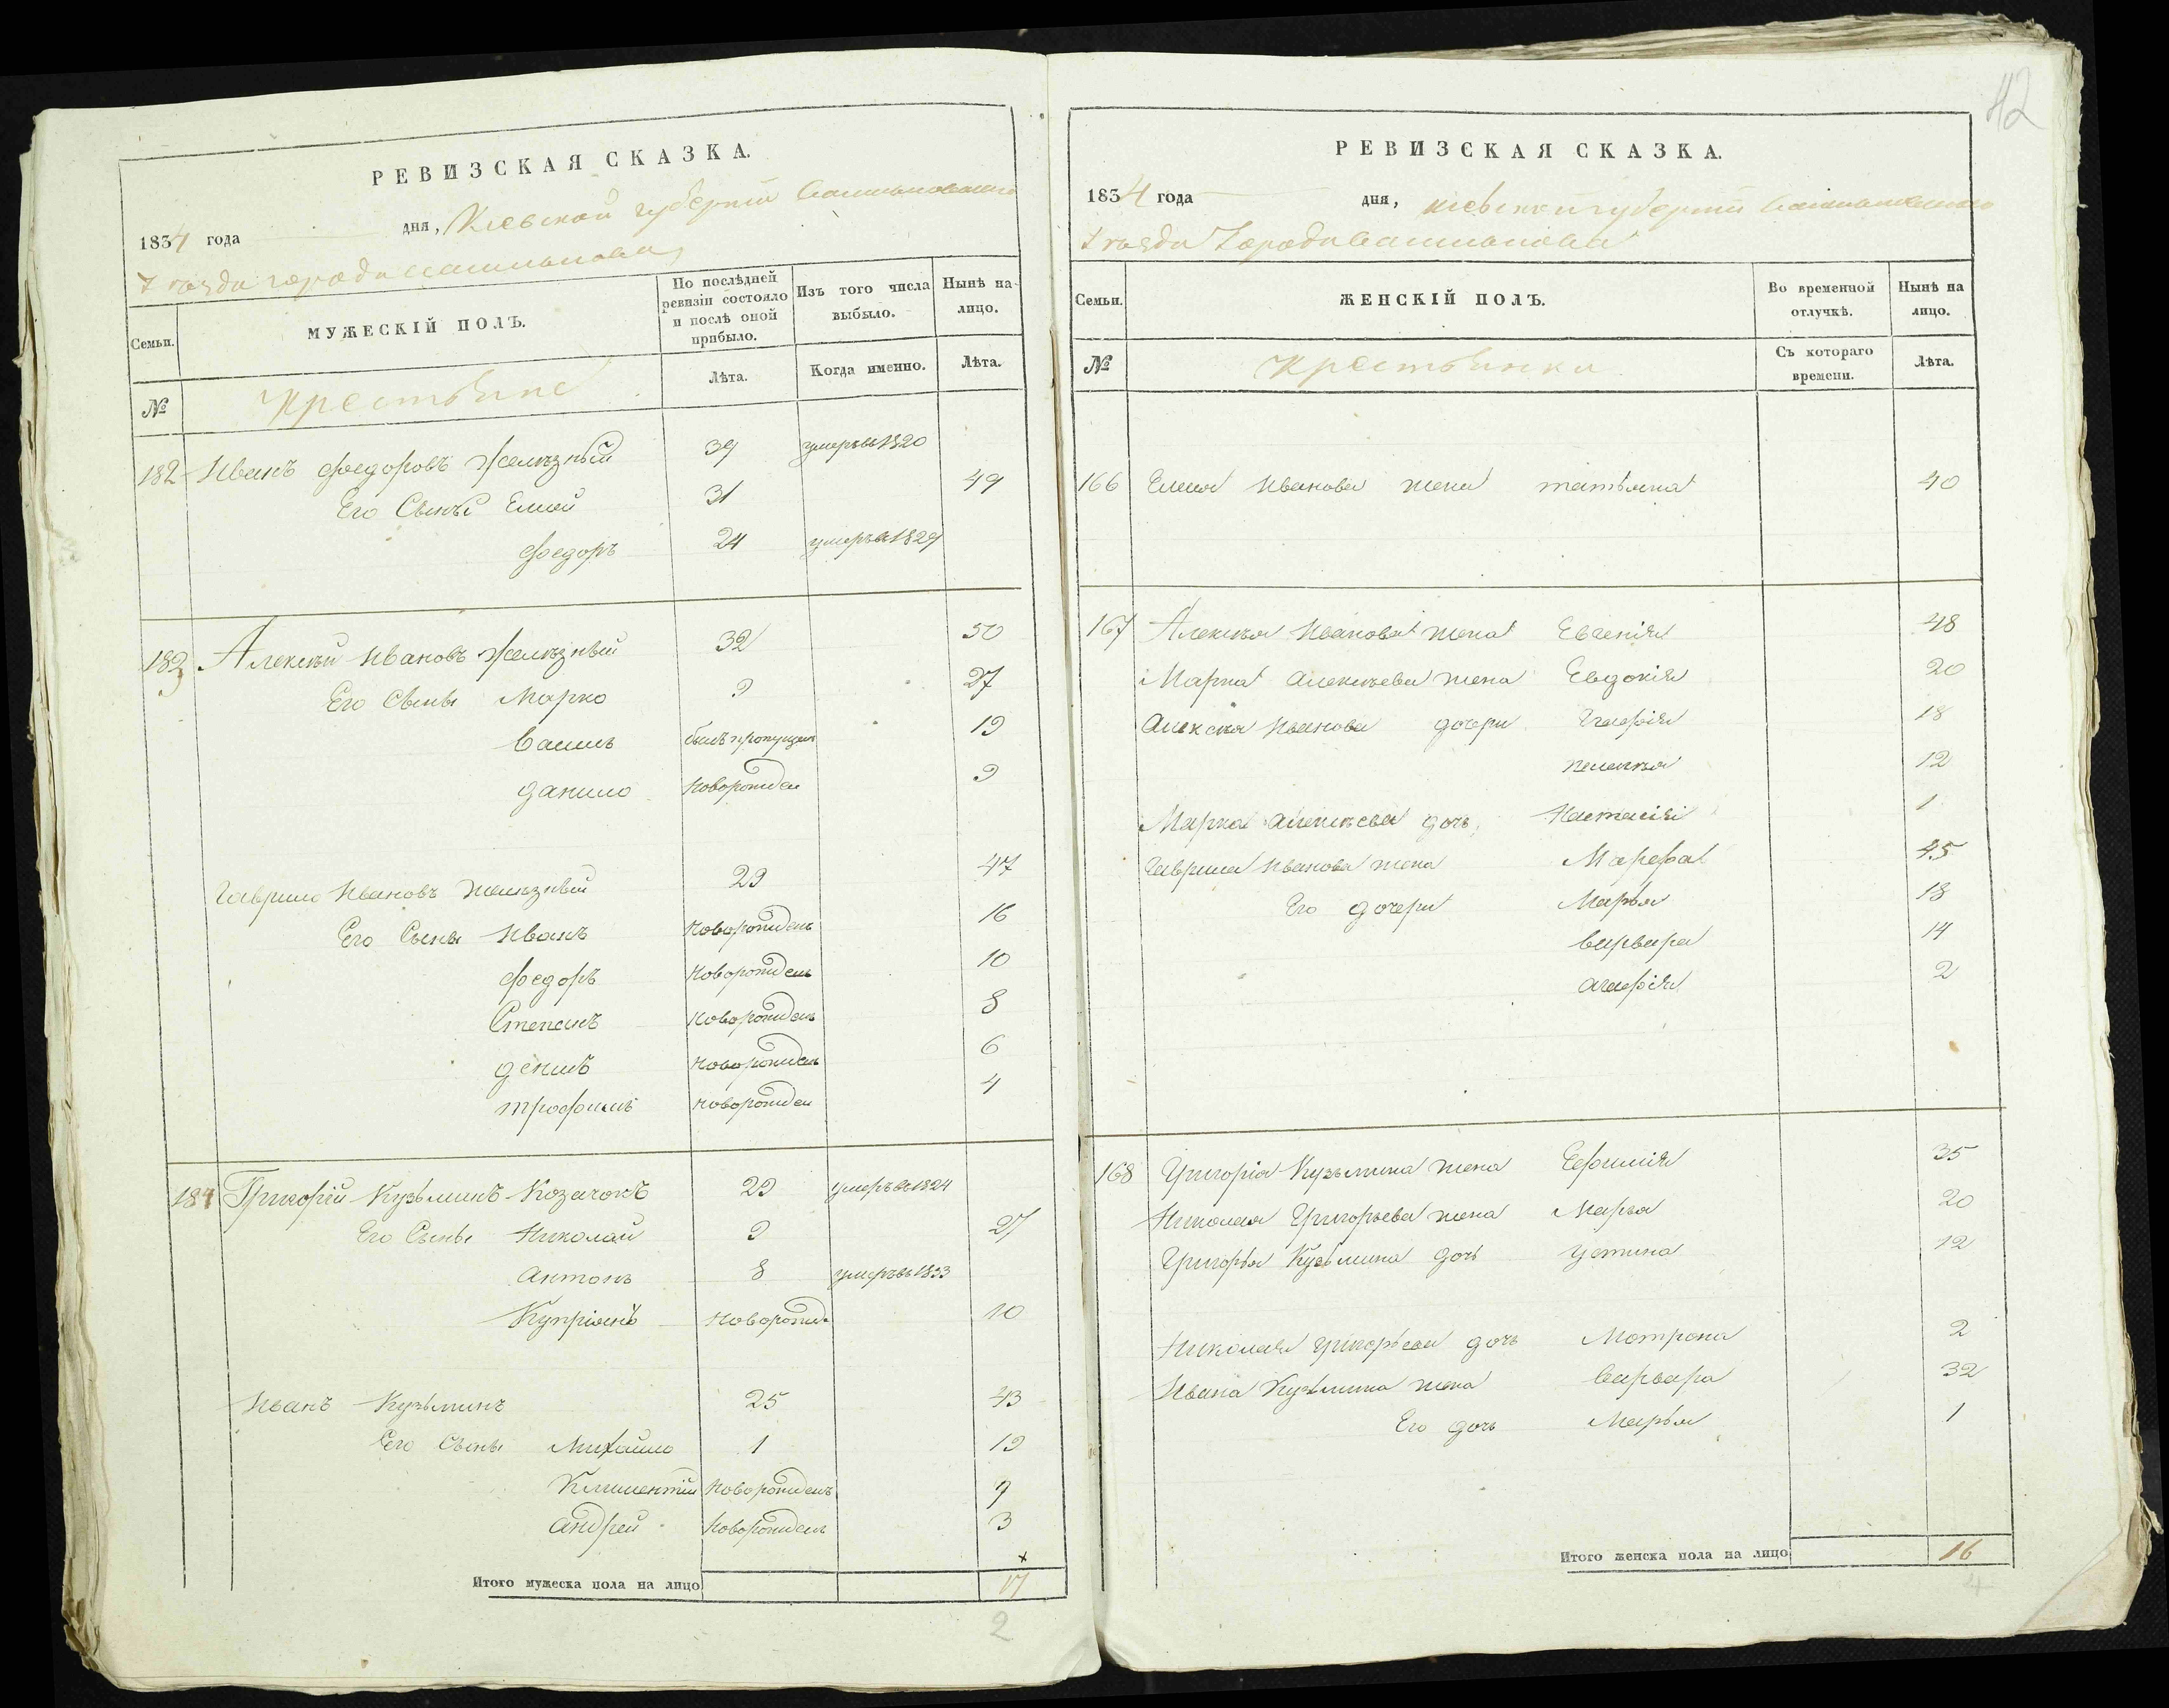 РЕВИЗСКАЯ СКАЗКА.
1834 года дня, Кіевской губерніи Васильковскаго
уѣзда города Василькова
Семьи. МУЖЕСКІЙ ПОЛЪ. По послѣдней ревизіи состояло и послѣ оной прибыло. Изъ того числа выбыло. Нынѣ на-лицо.
№ Крестьяне Лѣта. Когда именно. Лѣта.
182 Иванъ Федоровъ Желѣзный 39 умеръ въ 1820
Его Сыны Елисей 31 49
Федоръ 24 умеръ въ 1829
183 Алексѣй Ивановъ Желѣзный 32 50
Его Сыны Марко 9 27
Василь былъ пропущенъ 19
Данило новорожден 9
Гаврило Ивановъ Желѣзный 29 47
Его Сыны Иванъ новорожденъ 16
Федоръ новорожденъ 10
Степанъ новорожденъ 8
Денисъ новорожденъ 6
Трофимъ новорожден 4
184 Григорій Кузьминъ Козачокъ 29 умеръ въ 1824
Его Сыны Николай 9 27
Антонъ 8 умеръ въ 1833
Купріянъ новорожд. 10
Иванъ Кузьминъ 25 43
Его Сыны Михайло 1 19
Климентій новорожденъ 7
Андрей новорожденъ 3
Итого мужеска пола на лицо 17
2
42
РЕВИЗСКАЯ СКАЗКА.
1834 года дня, Кіевской губерніи Васильковскаго
уѣзда города Василькова
Семьи. ЖЕНСКІЙ ПОЛЪ. Во временной отлучкѣ. Нынѣ на лицо.
№ Крестьянки Съ котораго времени. Лѣта.
166 Елисея Иванова жена Татьяна 40
167 Алексѣя Иванова жена Евгенія 48
Марка Алексѣева жена Евдокія 20
Алексѣя Иванова дочери Агафія 18
Пелагѣя 12
Марка Алексѣева дочь Настасія 1
Гаврила Иванова жена Марфа 45
Его дочери Марья 18
Варвара 14
Агафія 2
168 Григорія Кузьмина жена Ефимія 35
Николая Григорьева жена Марья 20
Григорья Кузьмина дочь Устина 12
Николая Григорьева дочь Мотрона 2
Ивана Кузьмина жена Варвара 32
Его дочь Марья 1
Итого женска пола на лицо 16
4